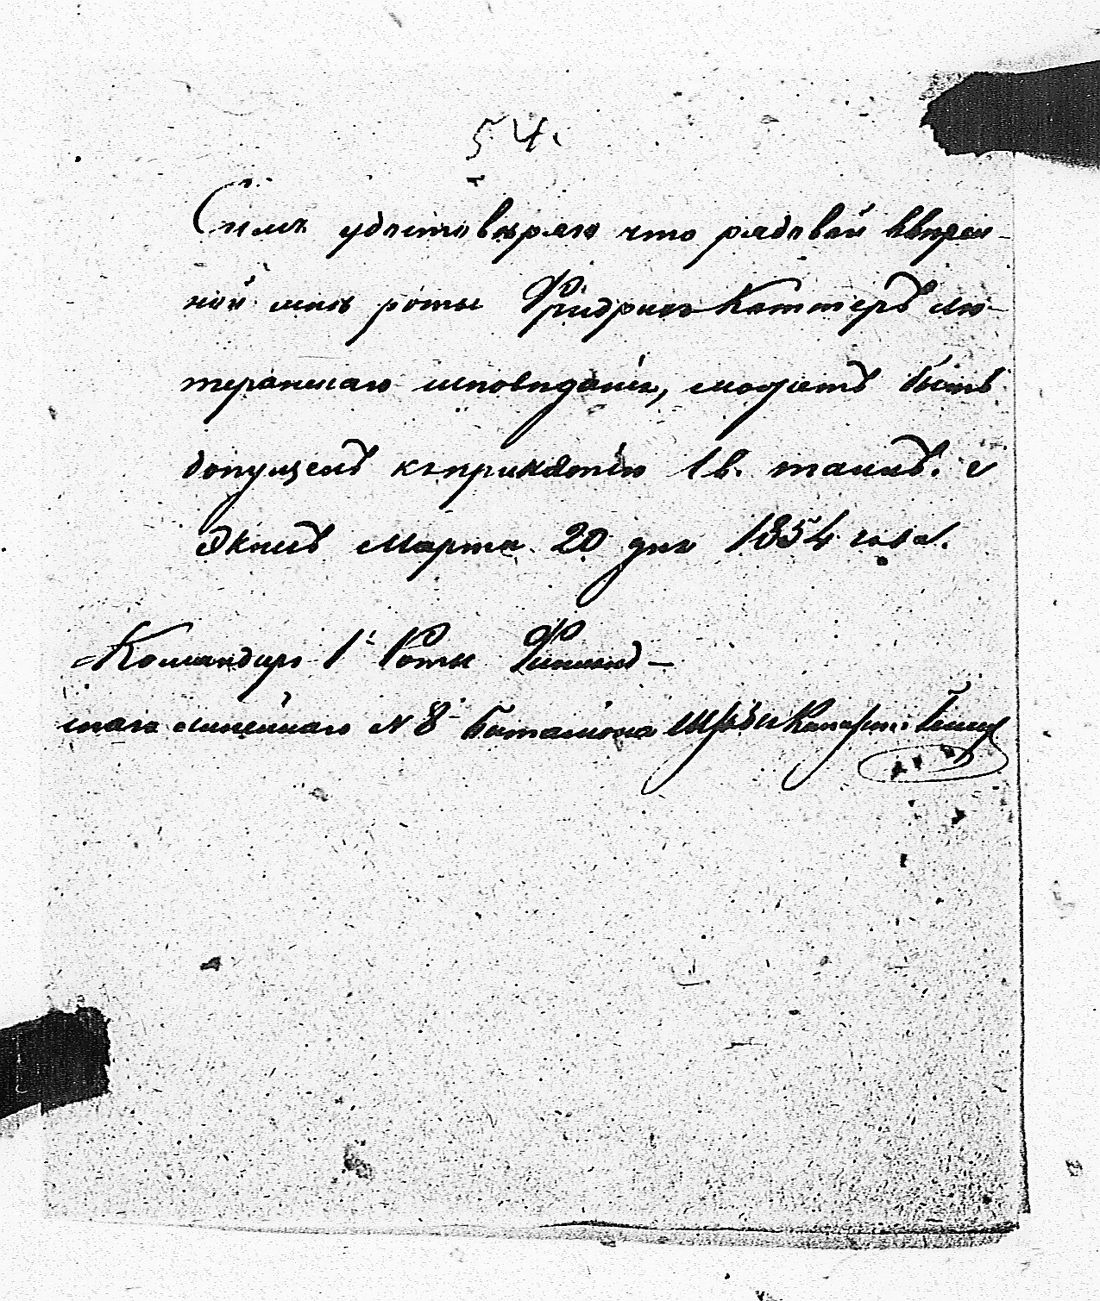 54.
Симъ удостоверяю что рядовой вверен-
ной мне роты Фридрихъ Каттеръ лю-
теранскаго исповеданія, можетъ быть
допущенъ къ принятію Св. таинъ.
Экнесъ Марта 20 дня 1854 года.
Командиръ 1й Роты Финлянд-
скаго линейнаго № 8 Баталіона Штабсъ Капитанъ